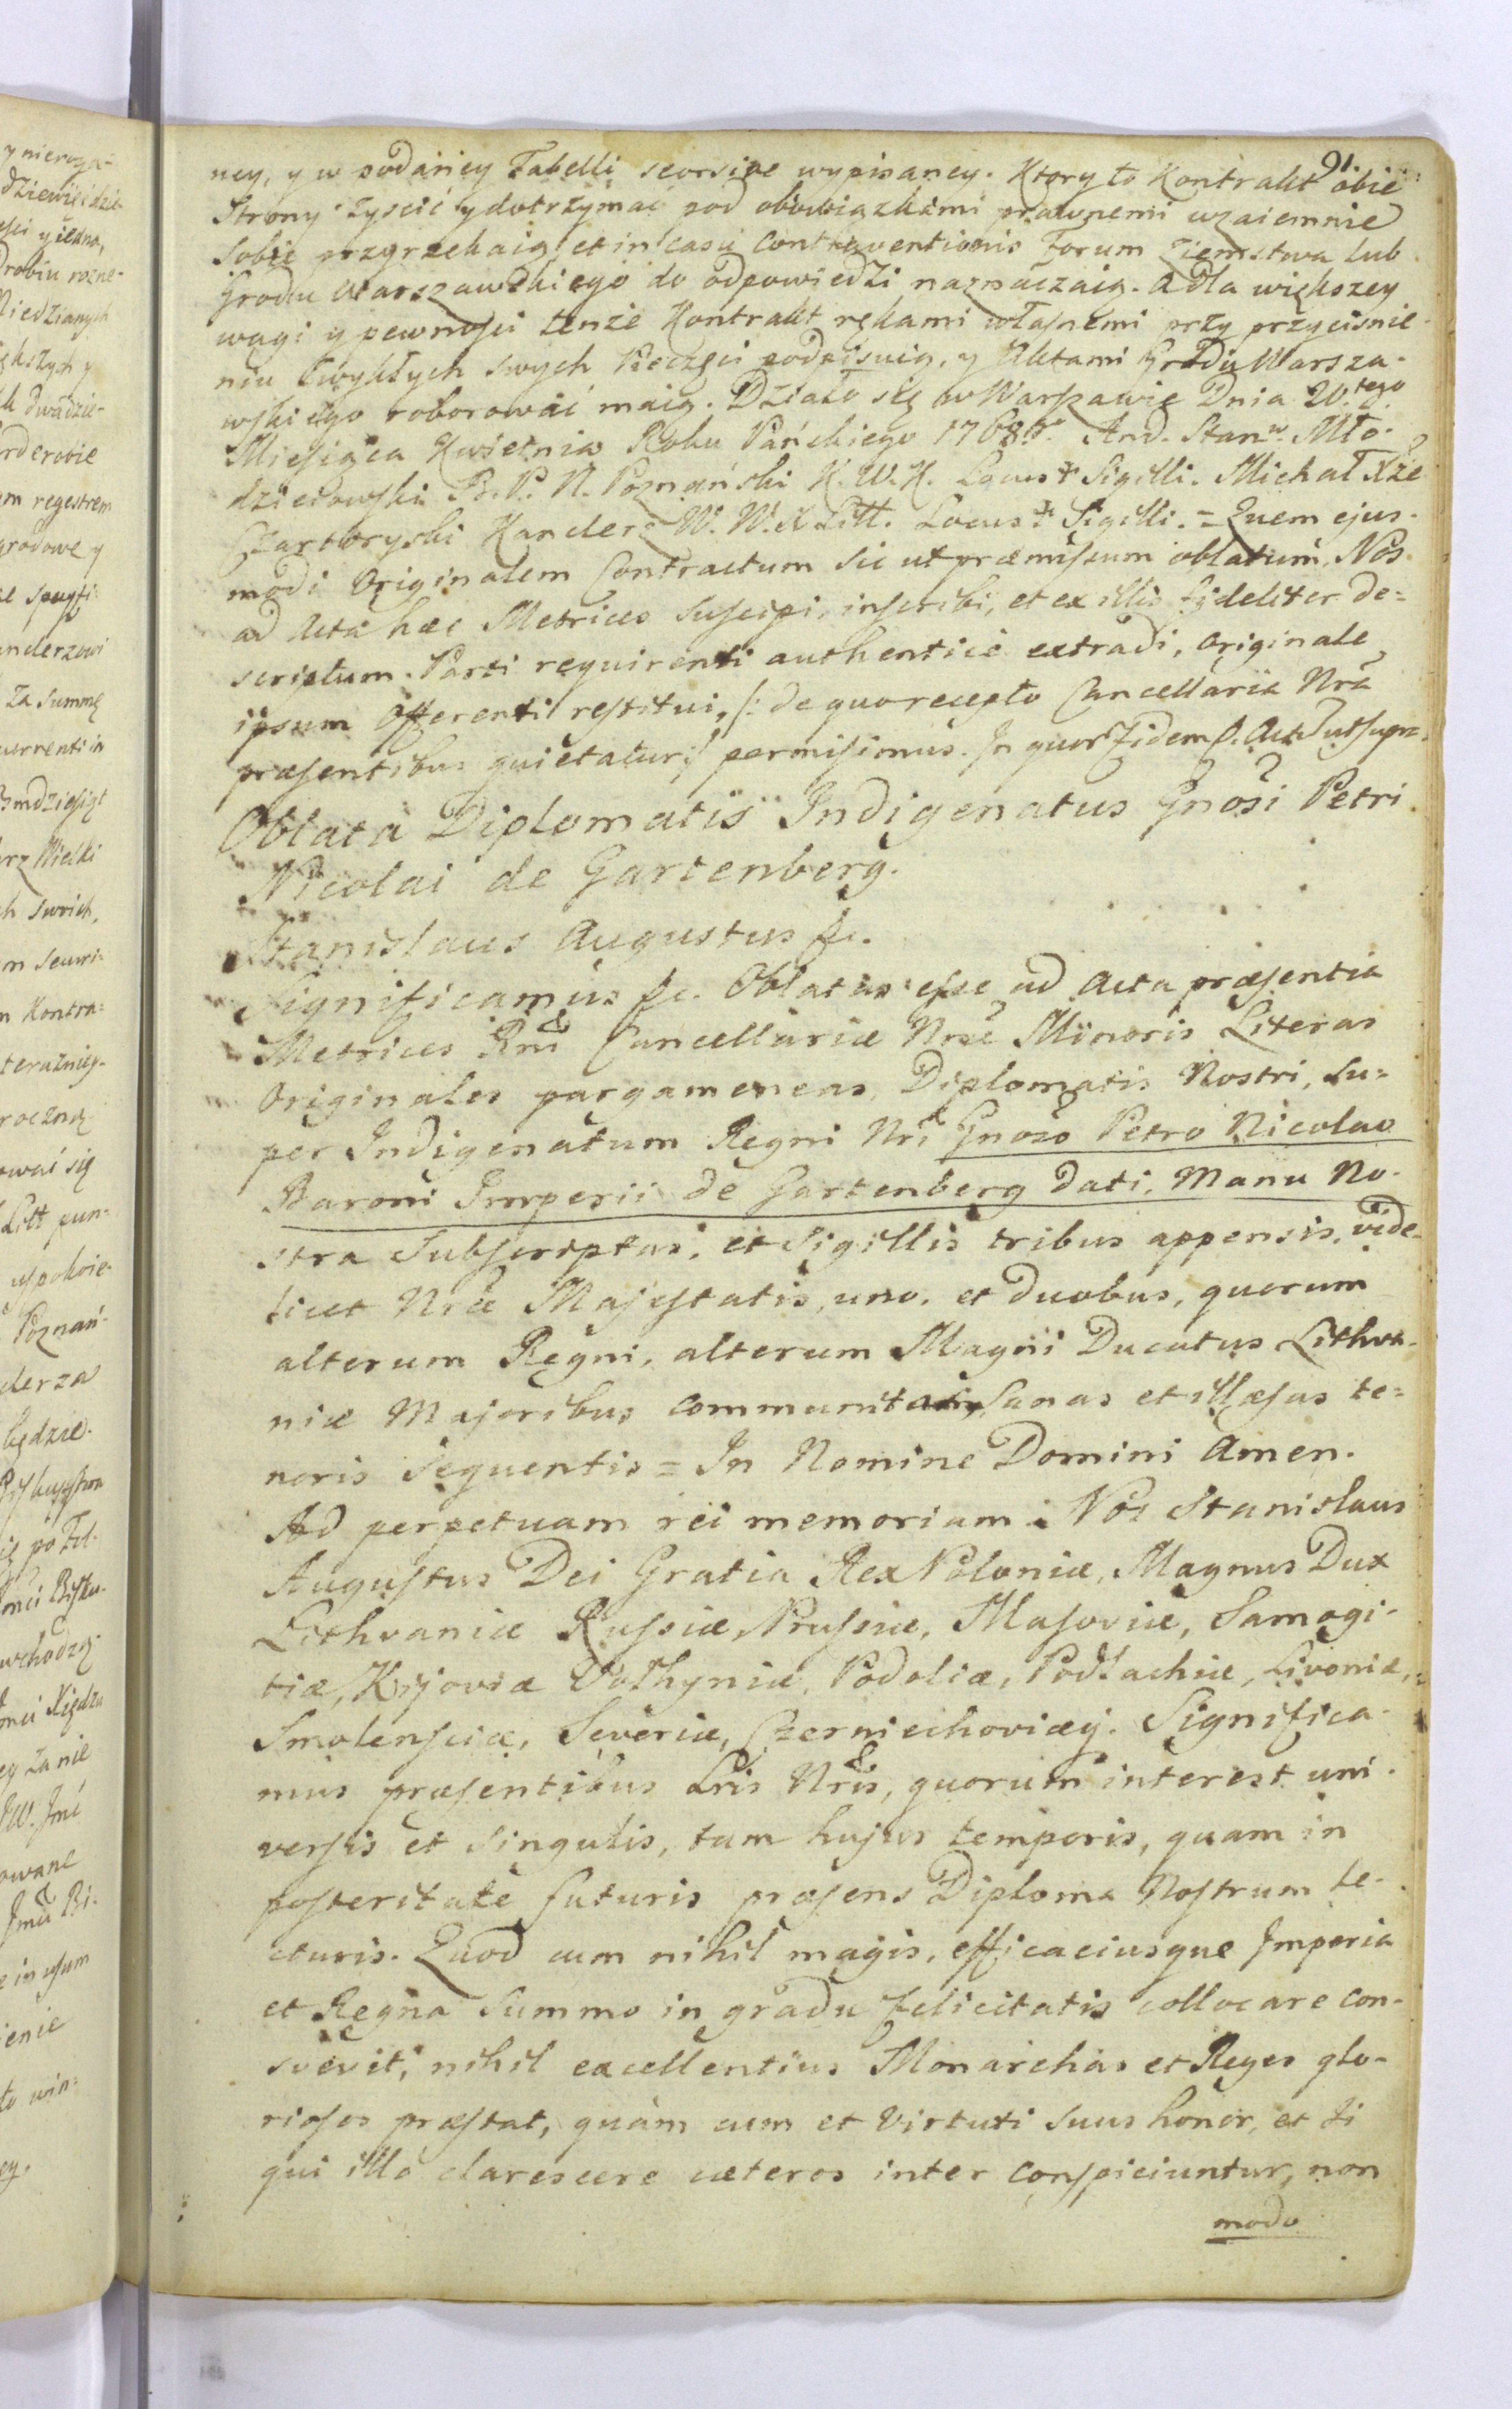 91.
ney, y w podaney Tabelli seorsive wypisaney. Ktory to Kontrakt obie
Strony zyscić y dotrzymać pod obowiązkami prawnemi wzaiemnie
Sobie przyrzekaią, et in casu Contraventionis Forum Ziemstwa lub
Grodu Warszawskiego do odpowiedzi naznaczaią. A dla większey
wagi y pewności tenże Kontrakt rękami własnemi przy przyciśnie-
niu zwykłych swych Pieczęci podpisuią, y Aktami Grodu Warsza-
wskiego roborować maią. Działo się w Warszawie Dnia 20.tego
Miesiąca Kwietnia Roku Pańskiego 1768. And. Stan. Mło-
dzieiowski P. N. Poznański K. W. K. Locus Sigilli. Michał Xże
Czartoryski Kanclerz W. W. X Litt. Locus Sigilli. = Quem ejus-
modi Originalem Contractum sic ut præmissum oblatum, Nos
ad Acta hæc Metrices suscipi, inscribi, et ex illis fideliter de=
scriptum. Parti requirenti authentice extradi, originale
ipsum Offerenti restitui, /: de quo recepto Cancellaria Nra
præsentibus quietatur :/ permisimus. In quor Fidem p. Act ut supra.
Oblata Diplomatis Indigenatus Gnosi Petri
Nicolai de Gartenberg.
Stanislaus Augustus &c.
Significamus &c. Oblatas esse ad Acta præsentia
Metrices Rni Cancellariæ Nræ Minoris Literas
Originales pargameneas, Diplomatis Nostri, su=
per Indigenatum Regni Nri Gnoso Petro Nicolao
Baroni Imperii de Gartenberg dati, Manu No-
stra Subscriptas, et Sigillis tribus appensis, vide-
licet Nræ Majestatis, uno. et duobus, quorum
alterum Regni, alterum Magni Ducatus Lithva-
niæ Majoribus communitas, Sanas et illæsas te=
noris sequentis = In Nomine Domini Amen.
Ad perpetuam rei memoriam. Nos Stanislaus
Augustus Dei Gratia Rex Poloniæ, Magnus Dux
Lithvaniæ Russiæ, Prussiæ, Masoviæ, Samogi-
tiæ, Kijoviæ Volhyniæ, Podoliæ, Podlachiæ, Livoniæ,
Smolensciæ, Severiæ, Czerniechoviæq. Significa-
mus præsentibus Lris Nris, quorum interest uni-
versis et singulis, tam hujus temporis, quam in
posteritate futuris præsens Diploma Nostrum le-
cturis. Quod cum nihil magis, efficaciusque Imperia
et Regna summo in gradu felicitatis collocare con-
svevit, nihil excellentius Monarchas et Reges glo-
riosos præstat, quàm cum et Virtuti suus honor, et ii
qui illo clarescere cæteros inter conspiciuntur, non
modo